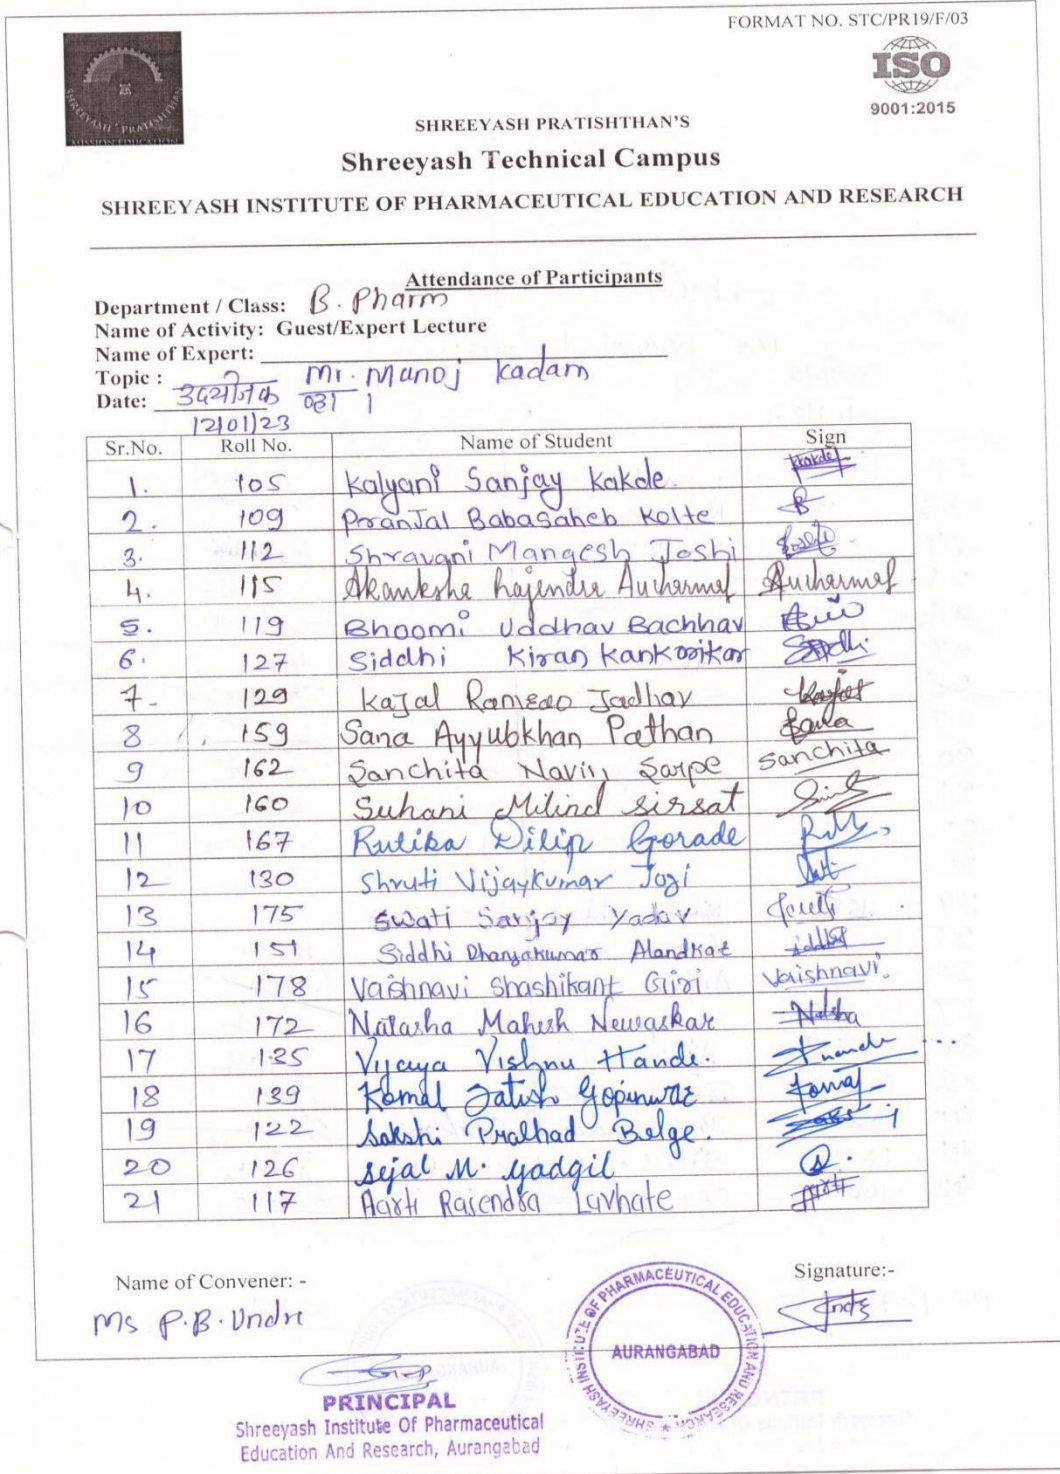 FORMAT NO. STC/PR19/F/03
SHREEYASH PRATISHTHAN
MISSION EDUCATION
ISO
9001:2015
SHREEYASH PRATISHTHAN'S
Shreeyash Technical Campus
SHREEYASH INSTITUTE OF PHARMACEUTICAL EDUCATION AND RESEARCH
Attendance of Participants
Department / Class: B. Pharm
Name of Activity: Guest/Expert Lecture
Name of Expert:
Topic : Mr. Manoj Kadam
Date: उदयोजक व्हा ।
12/01/23
Sr.No. Roll No. Name of Student Sign
1. 105 Kalyani Sanjay Kakde. Kakde
2. 109 PranJal Babasaheb Kolte
3. 112 Shravani Mangesh Joshi
4. 115 Akanksha Rajendra Auchermal Auchermal
5. 119 Bhoomi Uddhav Bachhav
6. 127 Siddhi Kiran Kankorikar Siddhi
7- 129 KaJal Ramrao Jadhav Kajal
8 159 Sana Ayyubkhan Pathan Sana
9 162 Sanchita Navin Sarpe Sanchita
10 160 Suhani Milind Sirsat
11 167 Rutika Dilip Gorade
12 130 Shruti Vijaykumar Jogi
13 175 Swati Sanjay Yadav
14 151 Siddhi Dhanyakumar Alandkar Siddhi
15 178 Vaishnavi Shashikant Giri Vaishnavi.
16 172 Natasha Mahesh Newaskar
17 135 Vijaya Vishnu Hande.
18 139 Komal Satish Gopinwar Komal
19 122 Sakshi Pralhad Belge.
20 126 Sejal M. Gadgil
21 117 Aarti Rajendra Lavhate Aarti
Name of Convener: - Signature:-
Ms P.B. Undre
SHREEYASH INSTITUTE OF PHARMACEUTICAL EDUCATION AND RESEARCH
AURANGABAD
PRINCIPAL
Shreeyash Institute Of Pharmaceutical
Education And Research, Aurangabad